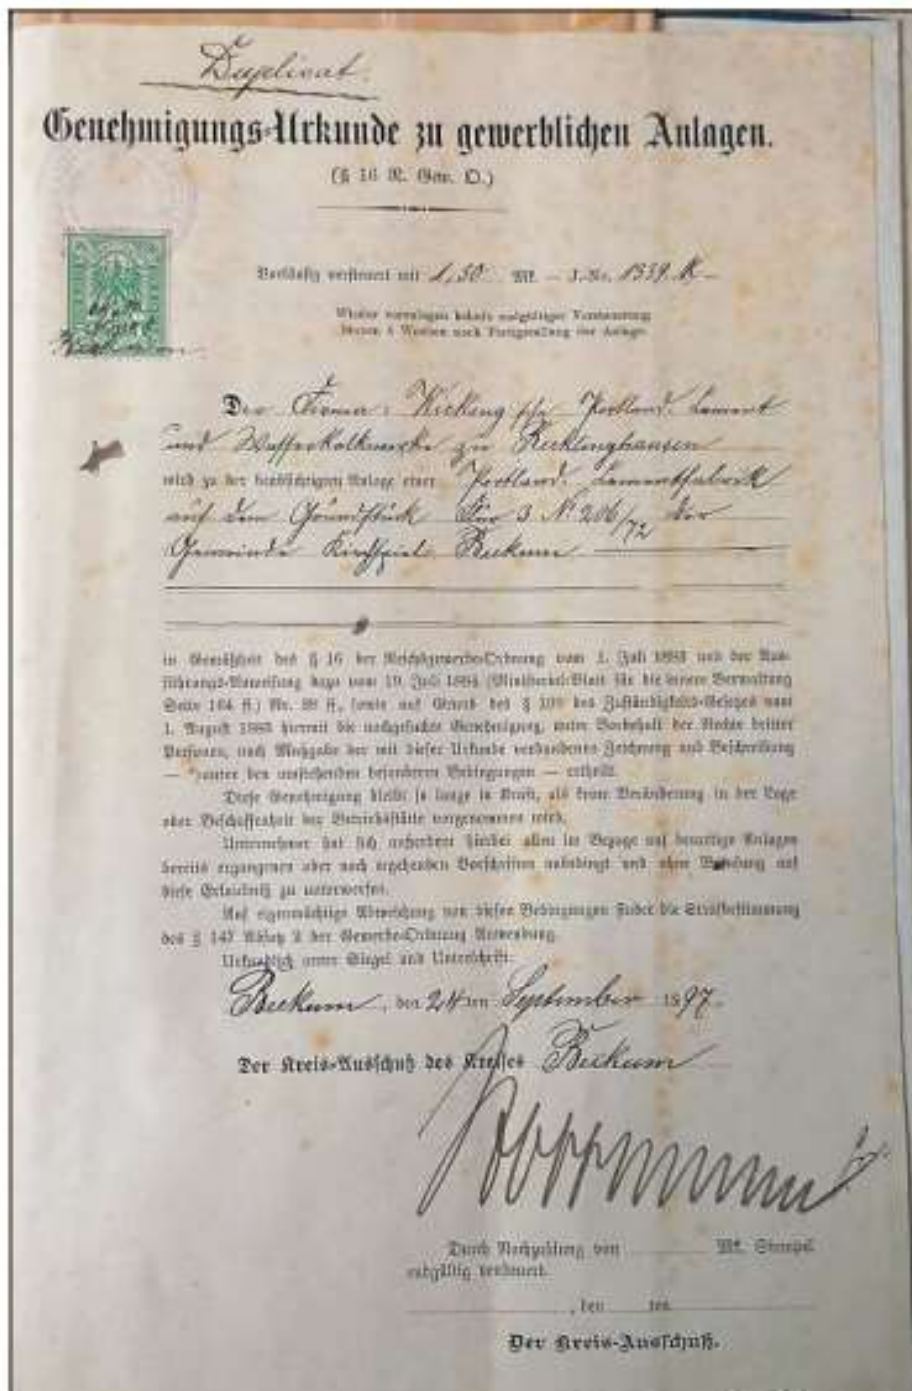 Duplicat.
Genehmigungs-Urkunde zu gewerblichen Anlagen.
(§ 16 R. Gew. O.)
Vorläufig versteuert mit 1,50 Mk. — J.-No. 1339. K.
Wieder vorzulegen behufs endgültiger Versteuerung
binnen 4 Wochen nach Fertigstellung der Anlage.
Der Firma: Wicking'sche Portland. Cement
und Wasserkalkwerke zu Recklinghausen
wird zu der beabsichtigten Anlage einer Portland. Cementfabrik
auf dem Grundstück Flur 3 No 206/72 der
Gemeinde Kirchspiel Beckum
in Gemäßheit des § 16 der Reichsgewerbe-Ordnung vom 1. Juli 1883 und der Aus-
führungs-Anweisung dazu vom 19. Juli 1884 (Ministerial-Blatt für die innere Verwaltung
Seite 164 ff.) No. ff., sowie auf Grund des § 109 des Zuständigkeits-Gesetzes vom
1. August 1883 hiermit die nachgesuchte Genehmigung, unter Vorbehalt der Rechte dritter
Personen, nach Maßgabe der mit dieser Urkunde verbundenen Zeichnung und Beschreibung
— *)unter den umstehenden besonderen Bedingungen — ertheilt.
Diese Genehmigung bleibt so lange in Kraft, als keine Veränderung in der Lage
oder Beschaffenheit der Betriebsstätte vorgenommen wird.
Unternehmer hat sich außerdem hierbei allen im Bezuge auf derartige Anlagen
bereits ergangenen oder noch ergehenden Vorschriften unbedingt und ohne auf
diese Erlaubniß zu unterwerfen.
Auf eigenmächtige Abweichung von diesen Bedingungen findet die Strafbestimmung
des § 147 Absatz 2 der Gewerbe-Ordnung Anwendung.
Urkundlich unter Siegel und Unterschrift.
Beckum, den 24ten September 1897.
Der Kreis-Ausschuß des Kreises Beckum
Durch Nachzahlung von Mk. Stempel
endgültig versteuert.
, den ten
Der Kreis-Ausschuß.